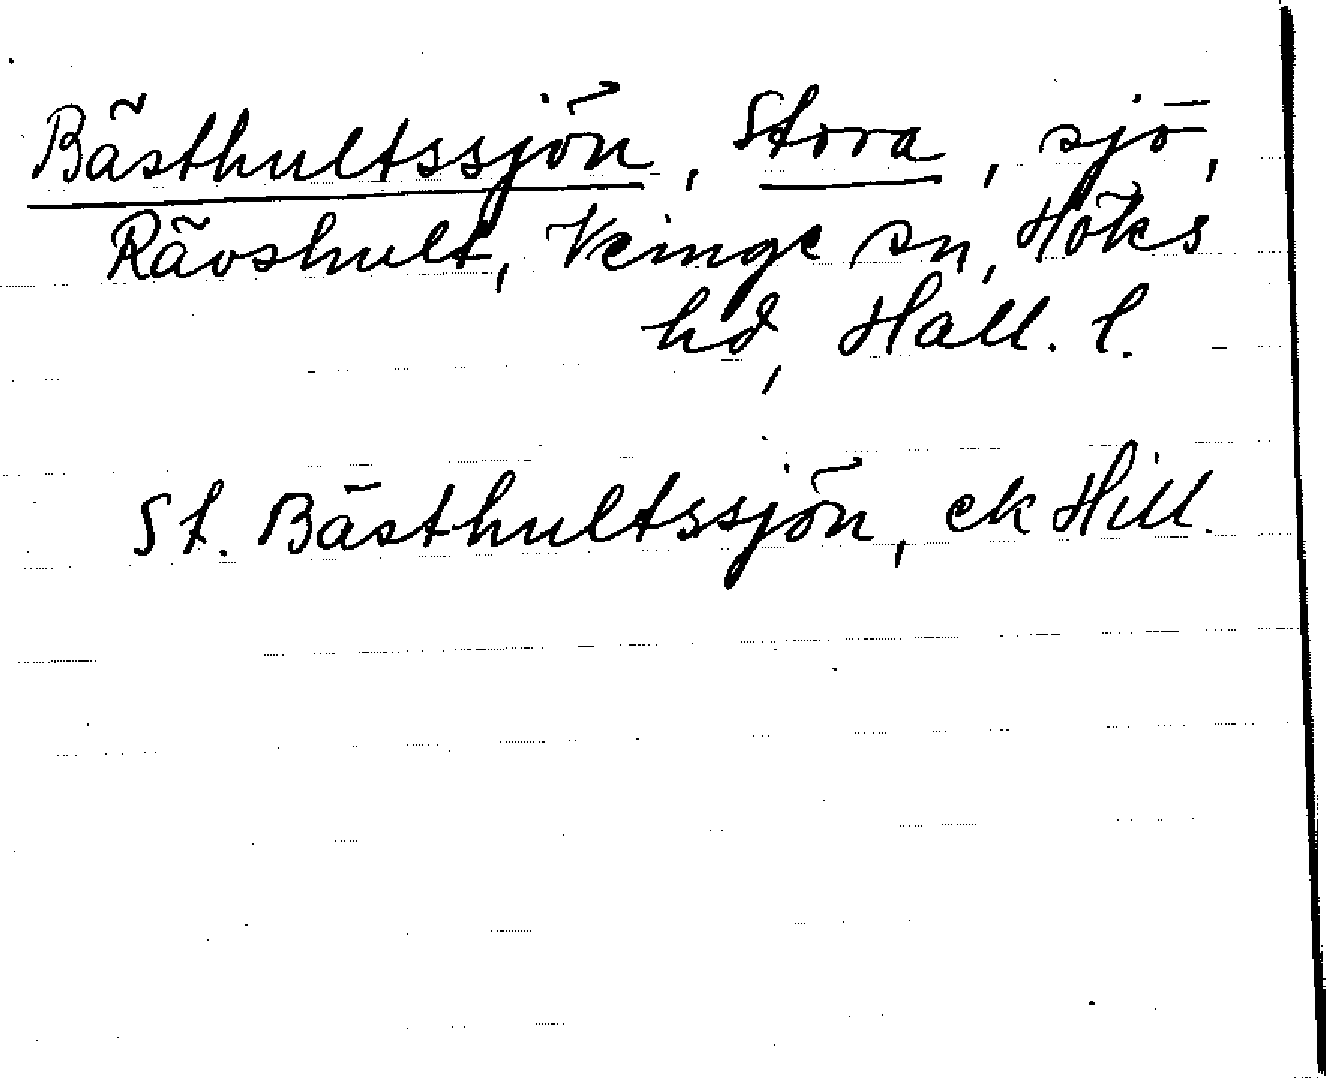 Bästhultssjön, Stora, sjö,
Rävshult, Veinge sn, Höks
hd, Hall. l.
St. Bästhultssjön, ek Hill.